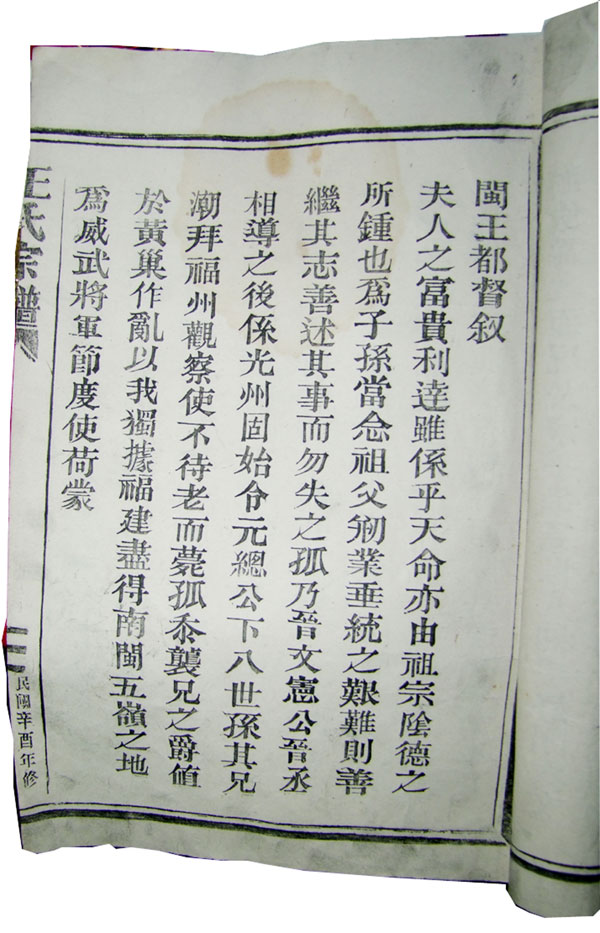 閩王都督叙
夫人之富貴利達雖係乎天命亦由祖宗陰德之
所鍾也為子孫當念祖父刱業垂統之艱難則善
繼其志善述其事而勿失之孤乃晉文憲公晉丞
相導之後係光州固始令元總公下八世孫其兄
潮拜福州觀察使不待老而薨孤忝襲兄之爵值
於黃巢作亂以我獨據福建盡得南閩五嶺之地
爲威武將軍節度使荷蒙
王氏宗譜
二
民國辛酉年修